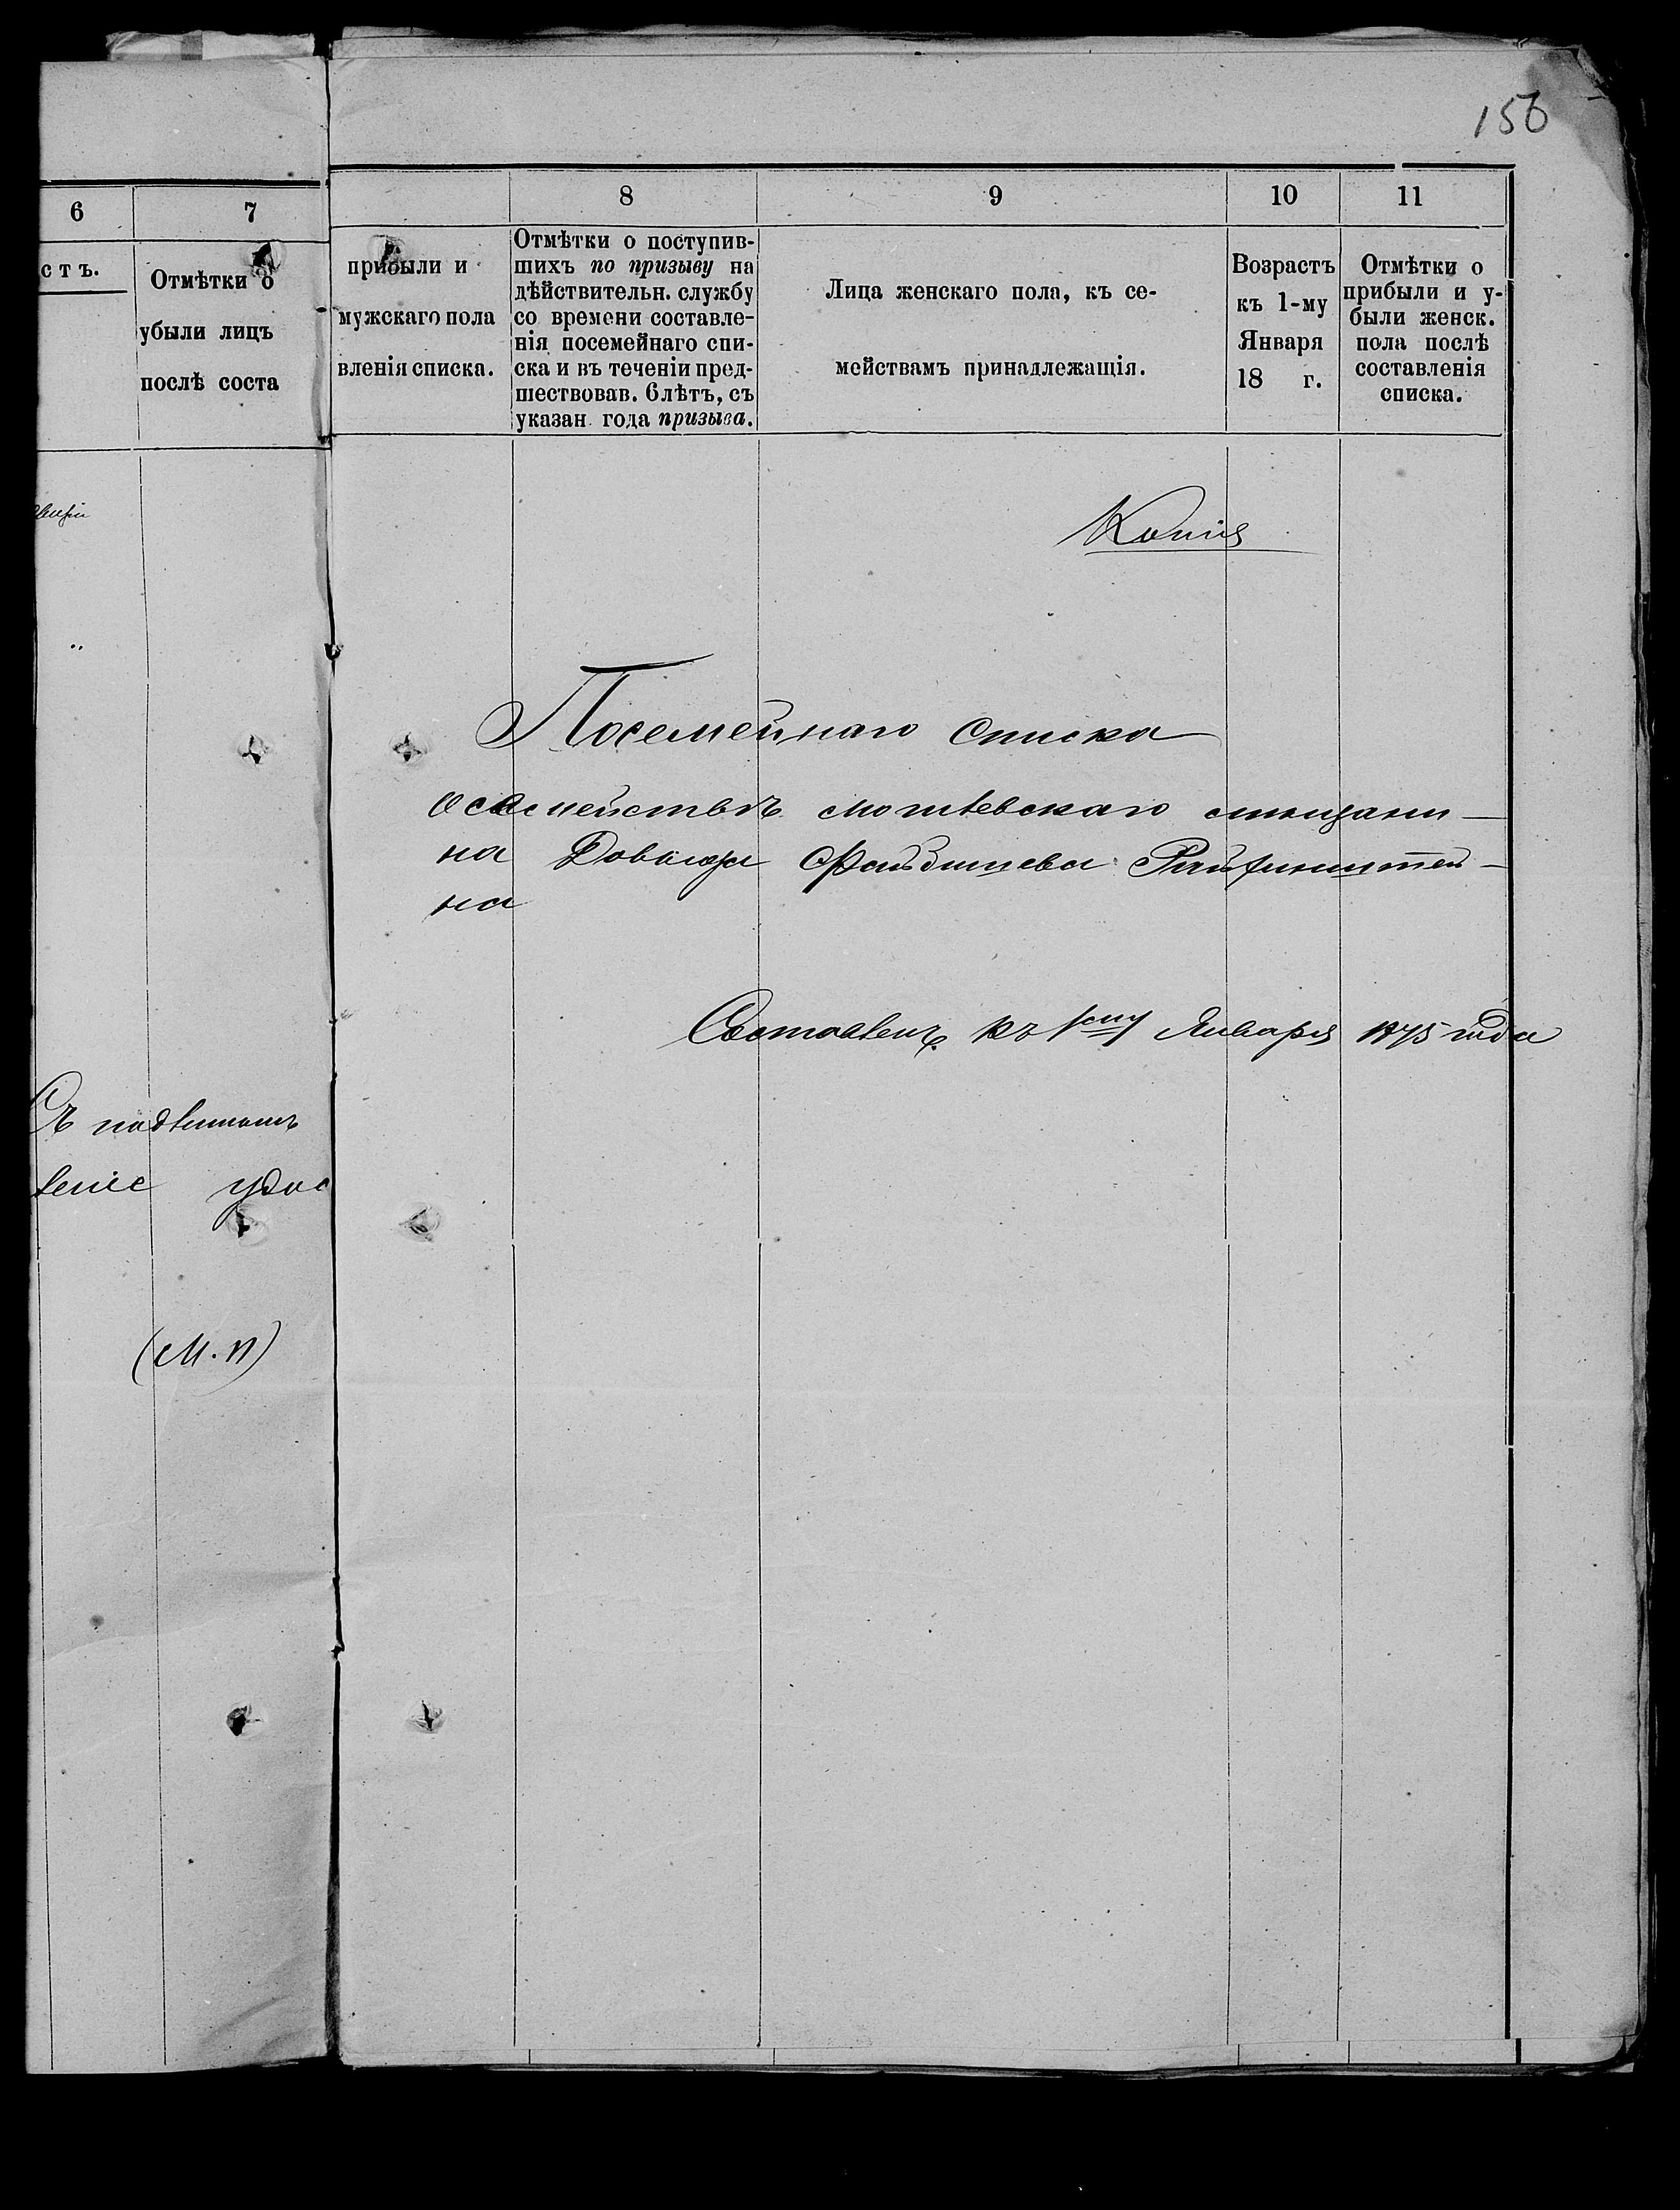 156
6 7
стъ. Отмѣтки о
убыли лицъ
послѣ соста
Съ подлиннымъ
леніе удос
(М. П)
8 9 10 11
прибыли и
мужскаго пола
вленія списка.
Отмѣтки о поступив-
шихъ по призыву на
дѣйствительн. службу
со времени составле-
нія посемейнаго спи-
ска и въ теченіи пред-
шествовав. 6 лѣтъ, съ
указан. года призыва.
Лица женскаго пола, къ се-
мействамъ принадлежащія.
Возрастъ
къ 1-му
Января
18 г.
Отмѣтки о
прибыли и у-
были женск.
пола послѣ
составленія
списка.
Копія
Посемейнаго списка
о семействѣ могилевскаго мѣщани-
на Довыда Файбишева Райхинштей-
на
Составленъ къ 1му Января 1875 года